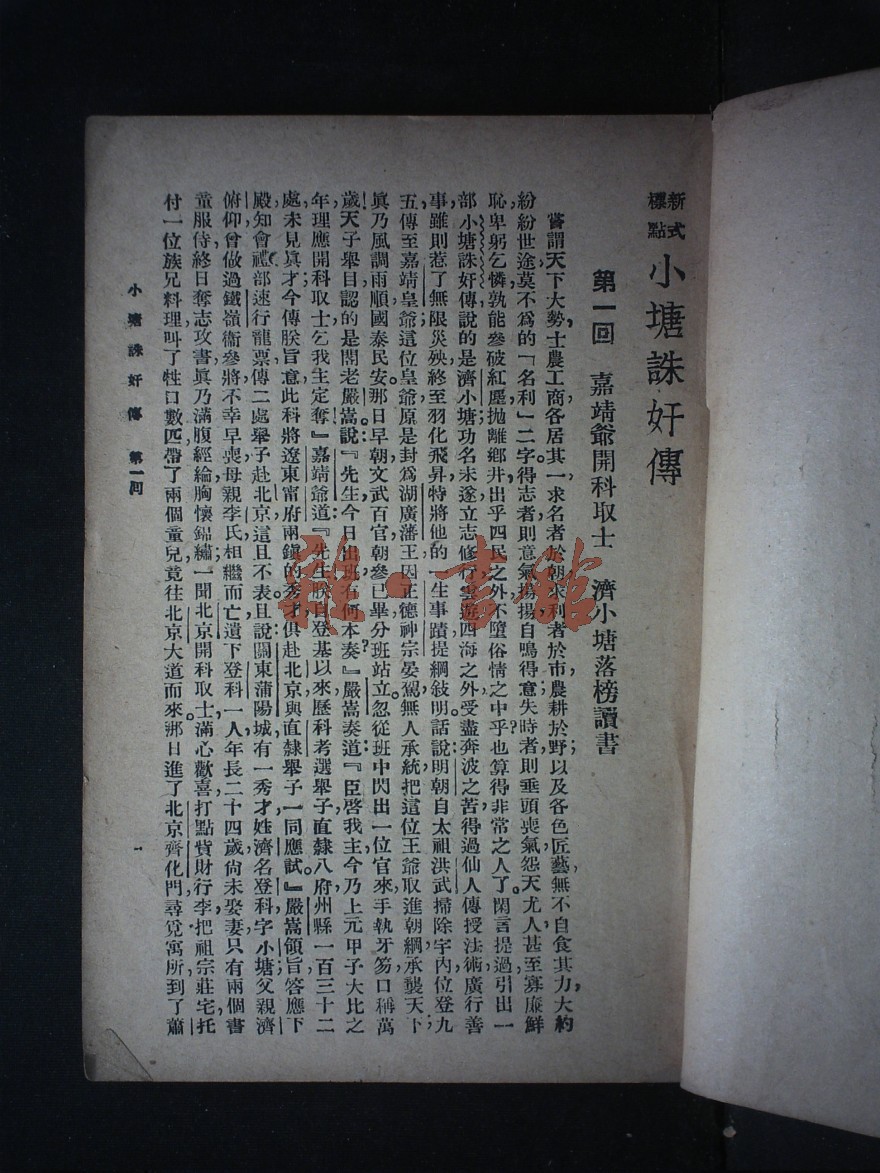 新式標點 小塘誅奸傳
第一回 嘉靖爺開科取士 濟小塘落榜讀書
嘗謂天下大勢，士農工商，各居其一，求名者於朝，求利者於市，農耕於野，以及各色匠藝，無不自食其力，大約
紛紛世途，莫不爲的「名利」二字，得志者則意氣揚揚，自鳴得意；失時者，則垂頭喪氣，怨天尤人，甚至寡廉鮮
恥，卑躬乞憐，孰能參破紅塵，抛離鄉井，出乎四民之外，不墮俗情之中乎？也算得非常之人了。閑言提過，引出一
部小塘誅奸傳，說的是濟小塘功名未遂，立志修行，雲遊四海之外，受盡奔波之苦，得過仙人傳授法術，廣行善
事，雖則惹了無限災殃，終至羽化飛昇，特將他的一生事蹟，提綱敍明。話說明朝自太祖洪武掃除宇內，位登九
五，傳至嘉靖皇爺，這位皇爺，原是封爲湖廣藩王，因正德神宗晏駕，無人承統，把這位王爺取進朝綱，承襲天下；
眞乃風調雨順，國泰民安。那日早朝，文武百官，朝參已畢，分班站立。忽從班中閃出一位官來，手執牙笏，口稱萬
歲！天子舉目認的是閣老嚴嵩，說：『先生今日出班，有何本奏？』嚴嵩奏道：『臣啓我主，今乃上元甲子，大比之
年，理應開科取士，乞我主定奪。』嘉靖爺道：『先生，朕自登基以來，歷科考選舉子，直隸八府州縣，一百三十二
處，未見眞才，今傳朕旨意，此科將遼東甯府兩鎭的秀才，俱赴北京，與直隸舉子，一同應試。』嚴嵩領旨，答應下
殿，知會禮部，速行龍票，傳二處舉子赴北京，這且不表。且說關東蒲陽城，有一秀才，姓濟，名登科，字小塘；父親濟
俯仰，曾做過鐵嶺衞參將，不幸早喪，母親李氏，相繼而亡，遺下登科一人，年長二十四歲，尙未娶妻，只有兩個書
童服侍，終日奪志攻書，眞乃滿腹經綸，胸懷錦繡；一聞北京開科取士，滿心歡喜，打點貲財行李，把祖宗莊宅，托
付一位族兄料理，叫了牲口數匹，帶了兩個童兒，竟往北京大道而來。那日進了北京齊化門，尋覓寓所，到了蕭
小塘誅奸傳 第一回
一
雜·書館